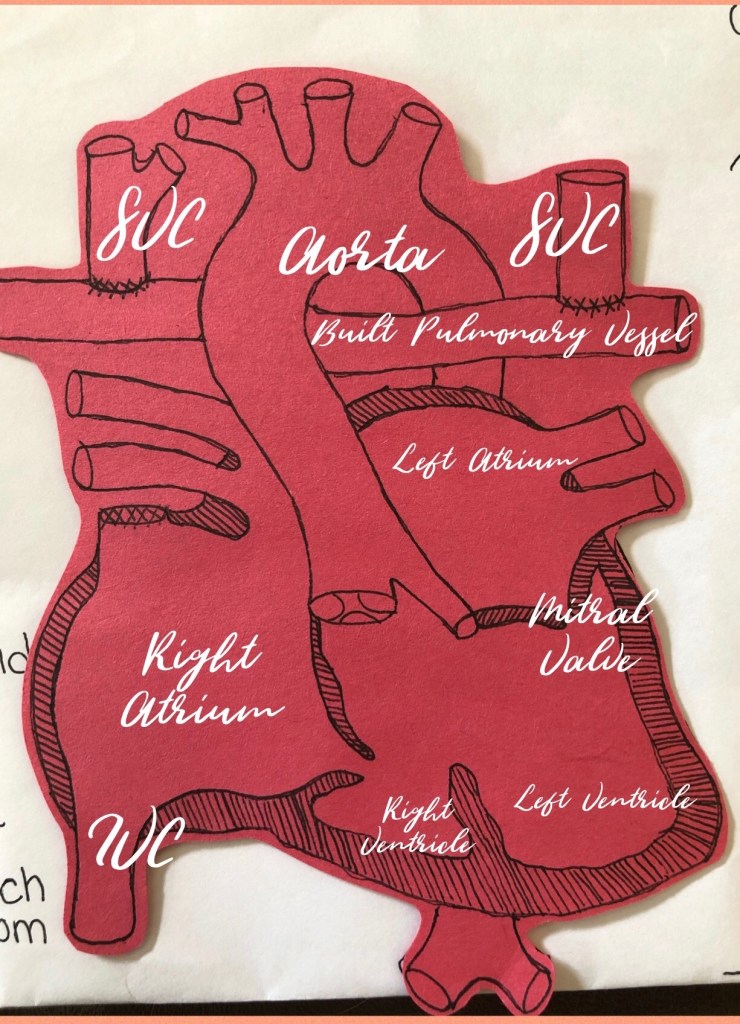 SVC
SVC
Aorta
Built Pulmonary Vessel
Left Atrium
Mitral
Valve
Right
Atrium
Left Ventricle
Right
Ventricle
IVC